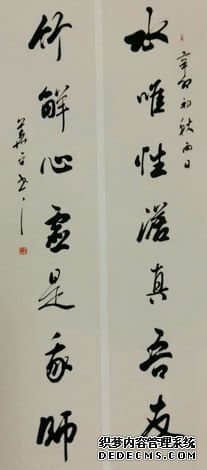 辛卯初秋雨日
水唯性澹真吾友
竹解心虚是我师
织梦内容管理系统
DEDECMS.COM